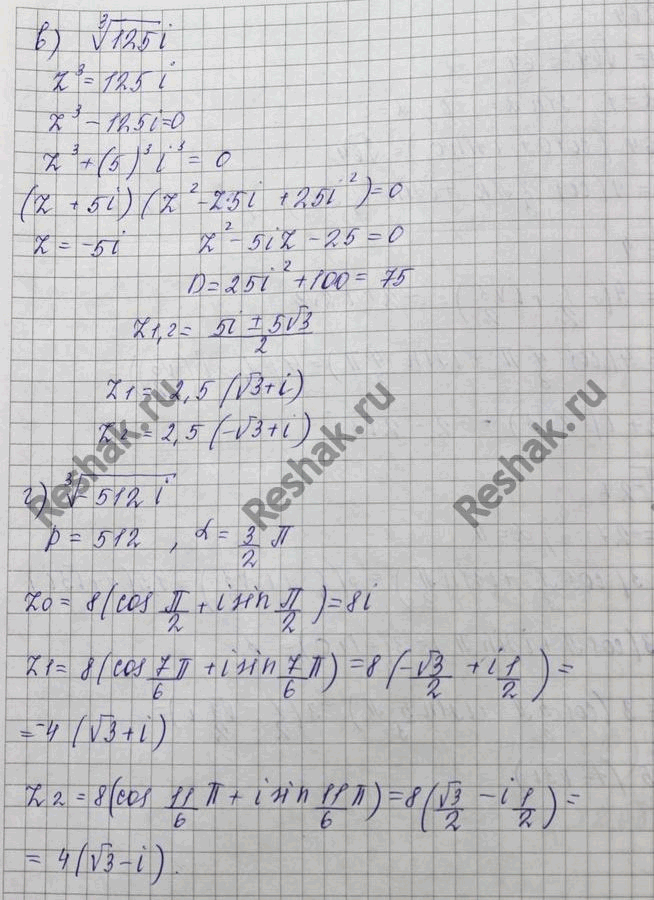 в) ∛125i
z³ = 125i
z³ - 125i = 0
z³ + (5)³ i³ = 0
(z + 5i)(z² - z·5i + 25i²) = 0
z = -5i z² - 5iz - 25 = 0
D = 25i² + 100 = 75
z1,2 = (5i ± 5√3)/2
z1 = 2,5 (√3+i)
z2 = 2,5 (-√3+i)
г) ∛-512i
p = 512 , α = 3/2 π
z0 = 8(cos π/2 + i sin π/2) = 8i
z1 = 8(cos 7π/6 + i sin 7π/6) = 8(-√3/2 + i 1/2) =
= -4 (√3+i)
z2 = 8(cos 11/6 π + i sin 11π/6) = 8(√3/2 - i 1/2) =
= 4(√3-i).
Reshak.ru
Reshak.ru
Reshak.ru